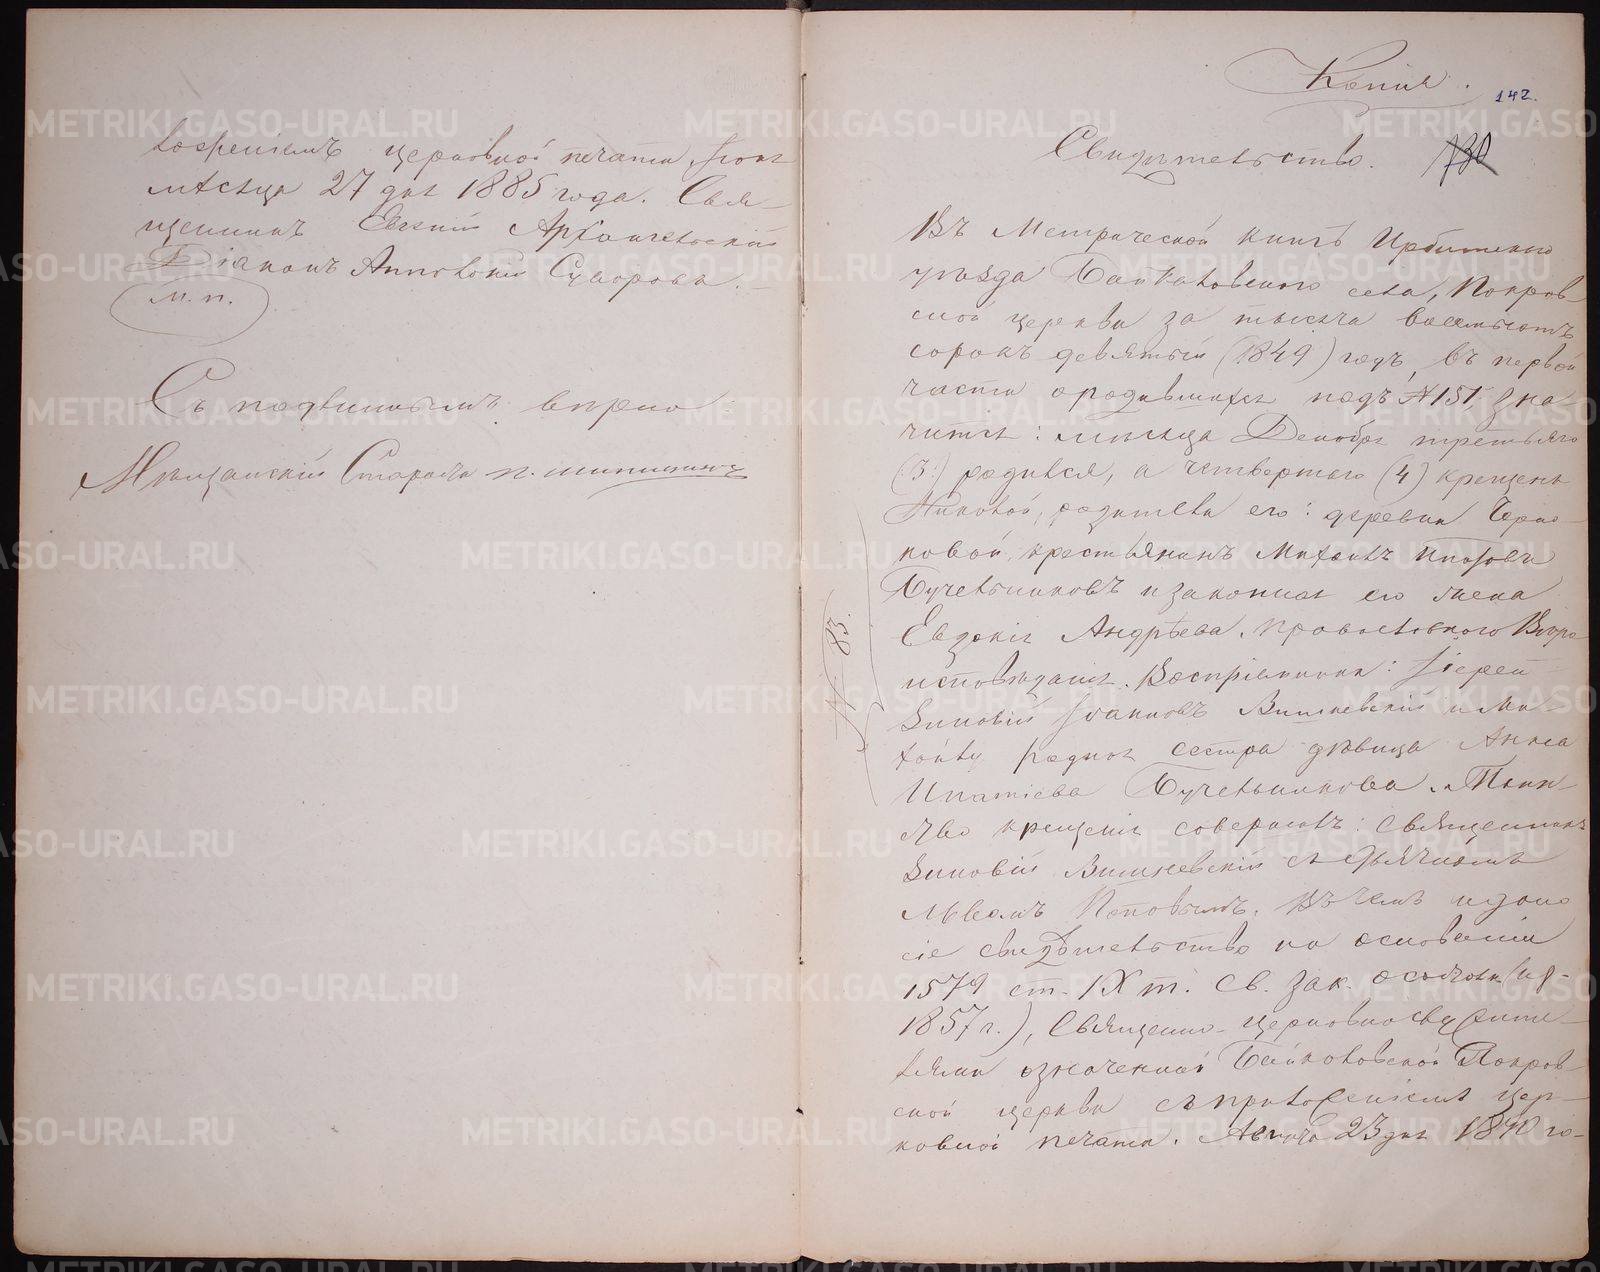 ложеніемъ церковной печати, Іюня
мѣсяца 27 дня 1885 года. Свя-
щенникъ Евгеній Архангельскій
Діаконъ Аполлоній Суворовъ.
М. п.
Съ подлиннымъ вѣрно:
Мѣщанскій Староста П. Шипицинъ
Копія.
142.
730
Свидѣтельство.
Въ Метрической книгѣ Ирбитскаго
уѣзда Байкаловскаго села, Покров-
ской церкви за тысяча восемьсотъ
сорокъ девятый (1849) годъ, въ первой
части о родившихся подъ № 151, зна-
чится: мѣсяца Декабря третьяго
(3) родился, а четвертаго (4) крещенъ
Николай, родители его: деревни
ковой крестьянинъ Михаилъ
Бучельниковъ и законная его жена
Евдокія Андрѣева, православнаго Вѣро
исповѣданія. Воспріемники: Іерей
Зиновій Іоанновъ Вишневскій и Ми-
хаилу родная сестра дѣвица Анна
Ипатіева Бучельникова. Таин-
ство крещенія совершалъ: Священникъ
Зиновій Вишневскій съ дьячкомъ
Львомъ Поповымъ. Въ чемъ и дано
сіе свидѣтельство на основаніи
1579 ст. IX т. Св. Зак. о состоян. (изд.
1857 г.), Священно-церковнослужите-
лями означенной Байкаловской Покров-
ской церкви съ приложеніемъ цер-
ковной печати. Августа 23 дня 1870 го-
№ 83.
METRIKI.GASO-URAL.RU